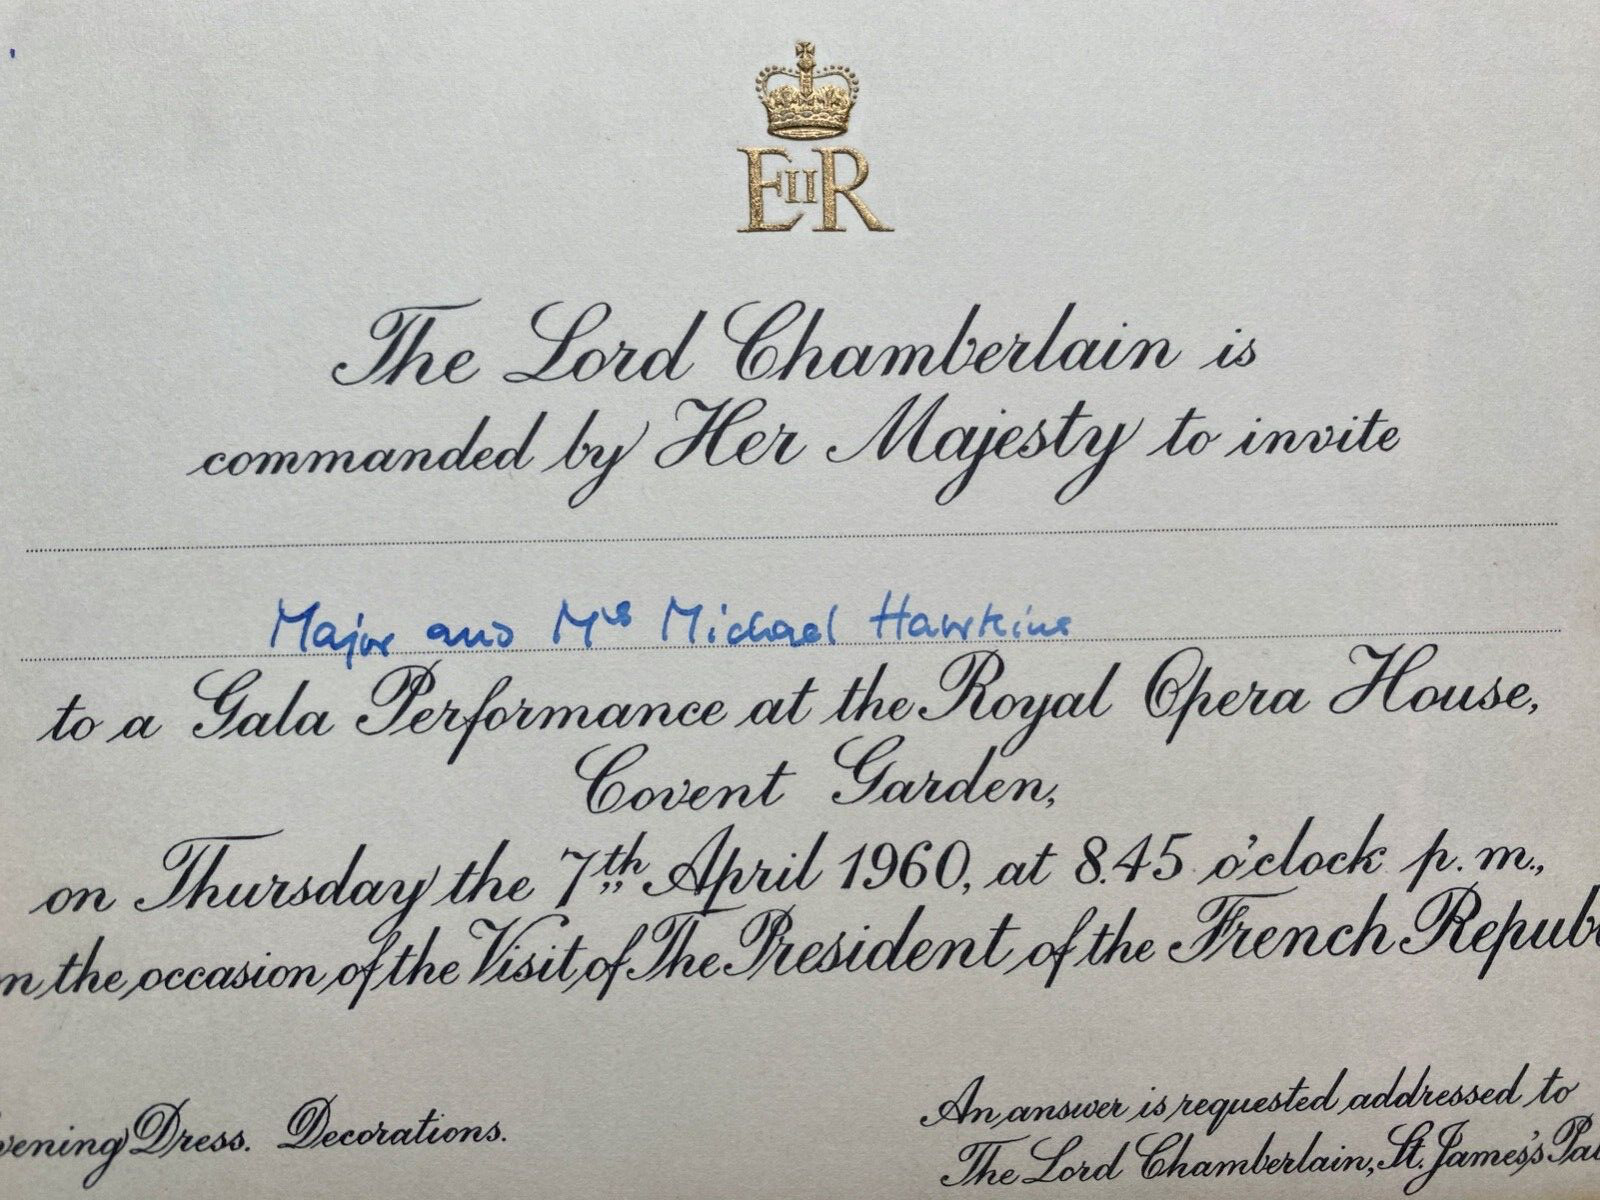 EIIR
The Lord Chamberlain is
commanded by Her Majesty to invite
Major and Mrs Michael Hawkins
to a Gala Performance at the Royal Opera House,
Covent Garden,
on Thursday the 7th April 1960, at 8.45 o'clock p.m.,
n the occasion of the Visit of The President of the French Repub
vening Dress. Decorations.
An answer is requested addressed to
The Lord Chamberlain, St. James's Pal